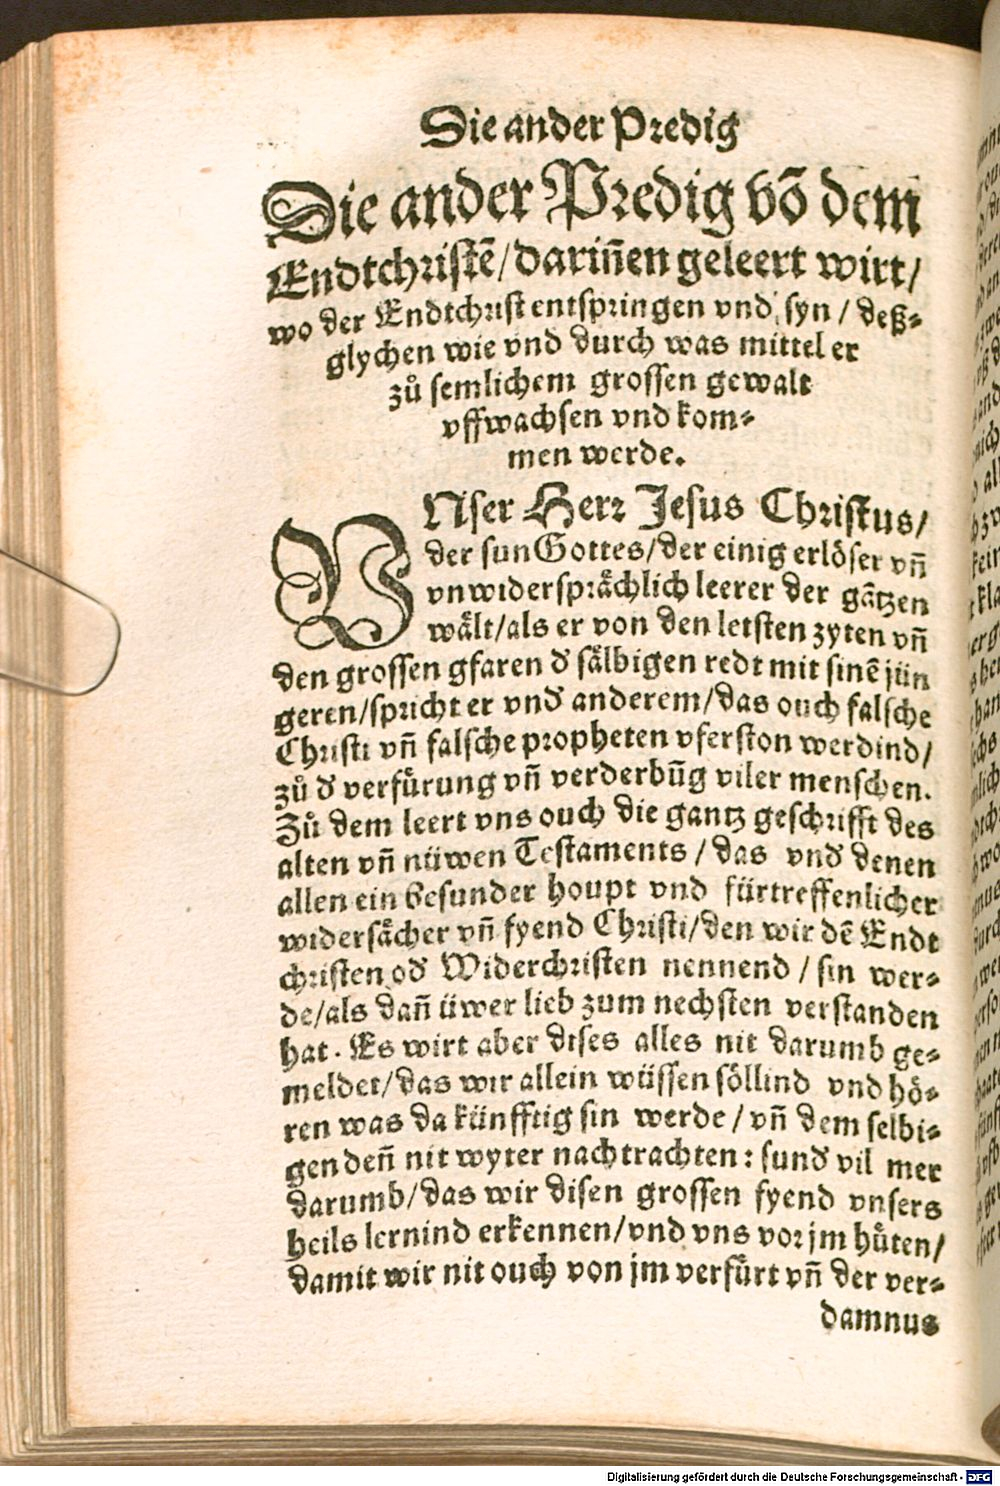 Die ander Predig
Die ander Predig võ dem
Endtchristẽ/ darin̄en geleert wirt/
wo der Endtchrist entspringen vnd syn / deß⸗
glychen wie vnd durch was mittel er
zů semlichem grossen gewalt
vffwachsen vnd kom⸗
men werde.
VNser Herr Jesus Christus/
der sun Gottes/der einig erlöser vn̄
vnwidersprächlich leerer der gãtzen
wält/als er von den letsten zyten vn̄
den grossen gfaren d' sälbigen redt mit sinẽ jün
geren/spricht er vnd' anderem/das ouch falsche
Christi vn̄ falsche propheten vferston werdind/
zů d' verfürung vn̄ verderbūg viler menschen.
Zů dem leert vns ouch die gantz geschrifft des
alten vn̄ nüwen Testaments / das vnd' denen
allen ein besunder houpt vnd fürtreffenlicher
widersächer vn̄ fyend Christi/den wir dẽ Endt
christen od' Widerchristen nennend / sin wer⸗
de/als dan̄ üwer lieb zum nechsten verstanden
hat. Es wirt aber dises alles nit darumb ge⸗
meldet/das wir allein wüssen söllind vnd hö⸗
ren was da künfftig sin werde / vn̄ dem selbi⸗
gen den̄ nit wyter nachtrachten: sund' vil mer
darumb/das wir disen grossen fyend vnsers
heils lernind erkennen/vnd vns vor jm hüten/
damit wir nit ouch von jm verfürt vn̄ der ver⸗
damnus
Digitalisierung gefördert durch die Deutsche Forschungsgemeinschaft - DFG